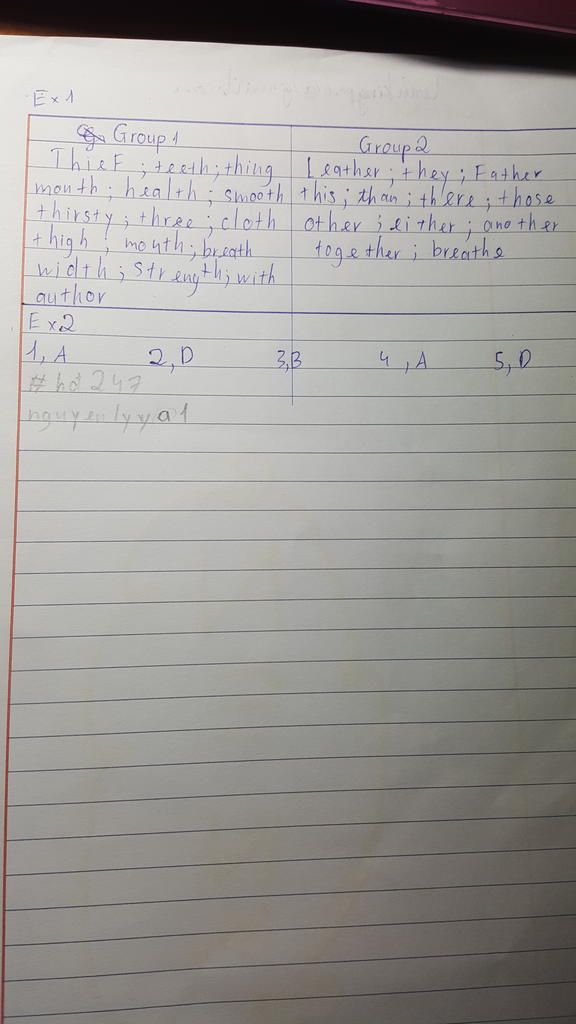 Ex1
Group1
Thief ; teeth ; thing
mouth ; health ; smooth
thirsty ; three ; cloth
thigh ; month ; breath
width ; strength ; with
author
Group2
Leather ; they ; Father
this ; than ; there ; those
other ; either ; another
together ; breathe
Ex2
1, A 2, D 3,B 4, A 5, D
#hd247
nguyenlyya1